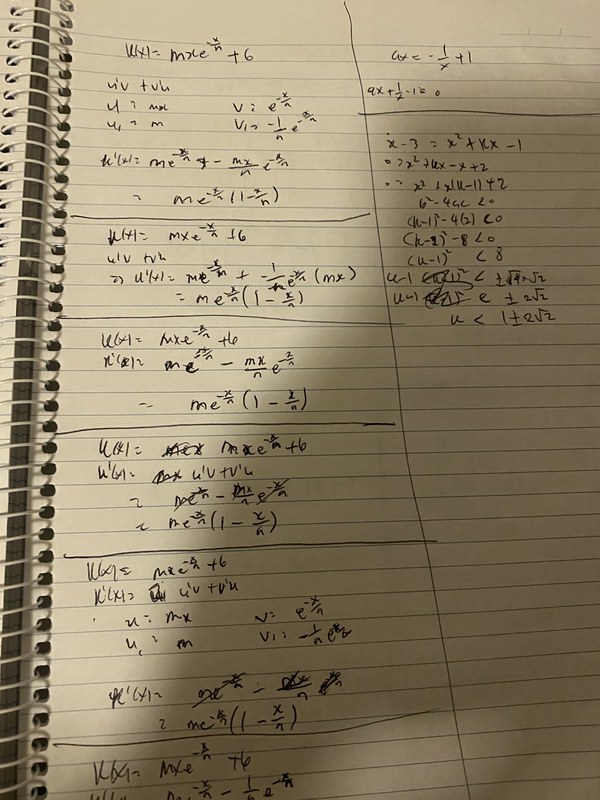 k(x) = mxe^{-x/n} + 6
u'v + v'u
u = mx    v = e^{-x/n}
u₁ = m    v₁ = -1/n e^{-x/n}
k'(x) = me^{-x/n} - mx/n e^{-x/n}
= me^{-x/n} (1 - x/n)
k(x) = mxe^{-x/n} + 6
u'v + v'u
⇒ k'(x) = me^{-x/n} + -1/n e^{-x/n} (mx)
= me^{-x/n} (1 - x/n)
k(x) = mxe^{-x/n} + 6
k'(x) = me^{-x/n} - mx/n e^{-x/n}
= me^{-x/n} (1 - x/n)
k(x) = mxe^{-x/n} + 6
k'(x) = u'v + v'u
= me^{-x/n} - mx/n e^{-x/n}
= me^{-x/n} (1 - x/n)
k(x) = mxe^{-x/n} + 6
k'(x) = u'v + v'u
u = mx    v = e^{-x/n}
u₁ = m    v₁ = -1/n e^{-x/n}
k'(x) = me^{-x/n} - mx/n e^{-x/n}
= me^{-x/n} (1 - x/n)
k(x) = mxe^{-x/n} + 6
- 1/n e^{-x/n}
ax = -1/x + 1
ax + 1/x - 1 = 0
x - 3 = x² + kx - 1
0 = x² + kx - x + 2
0 = x² + x(k-1) + 2
b² - 4ac < 0
(k-1)² - 4(2) < 0
(k-1)² - 8 < 0
(k-1)² < 8
k-1 < ±√4×√2
k-1 < ±2√2
k < 1±2√2